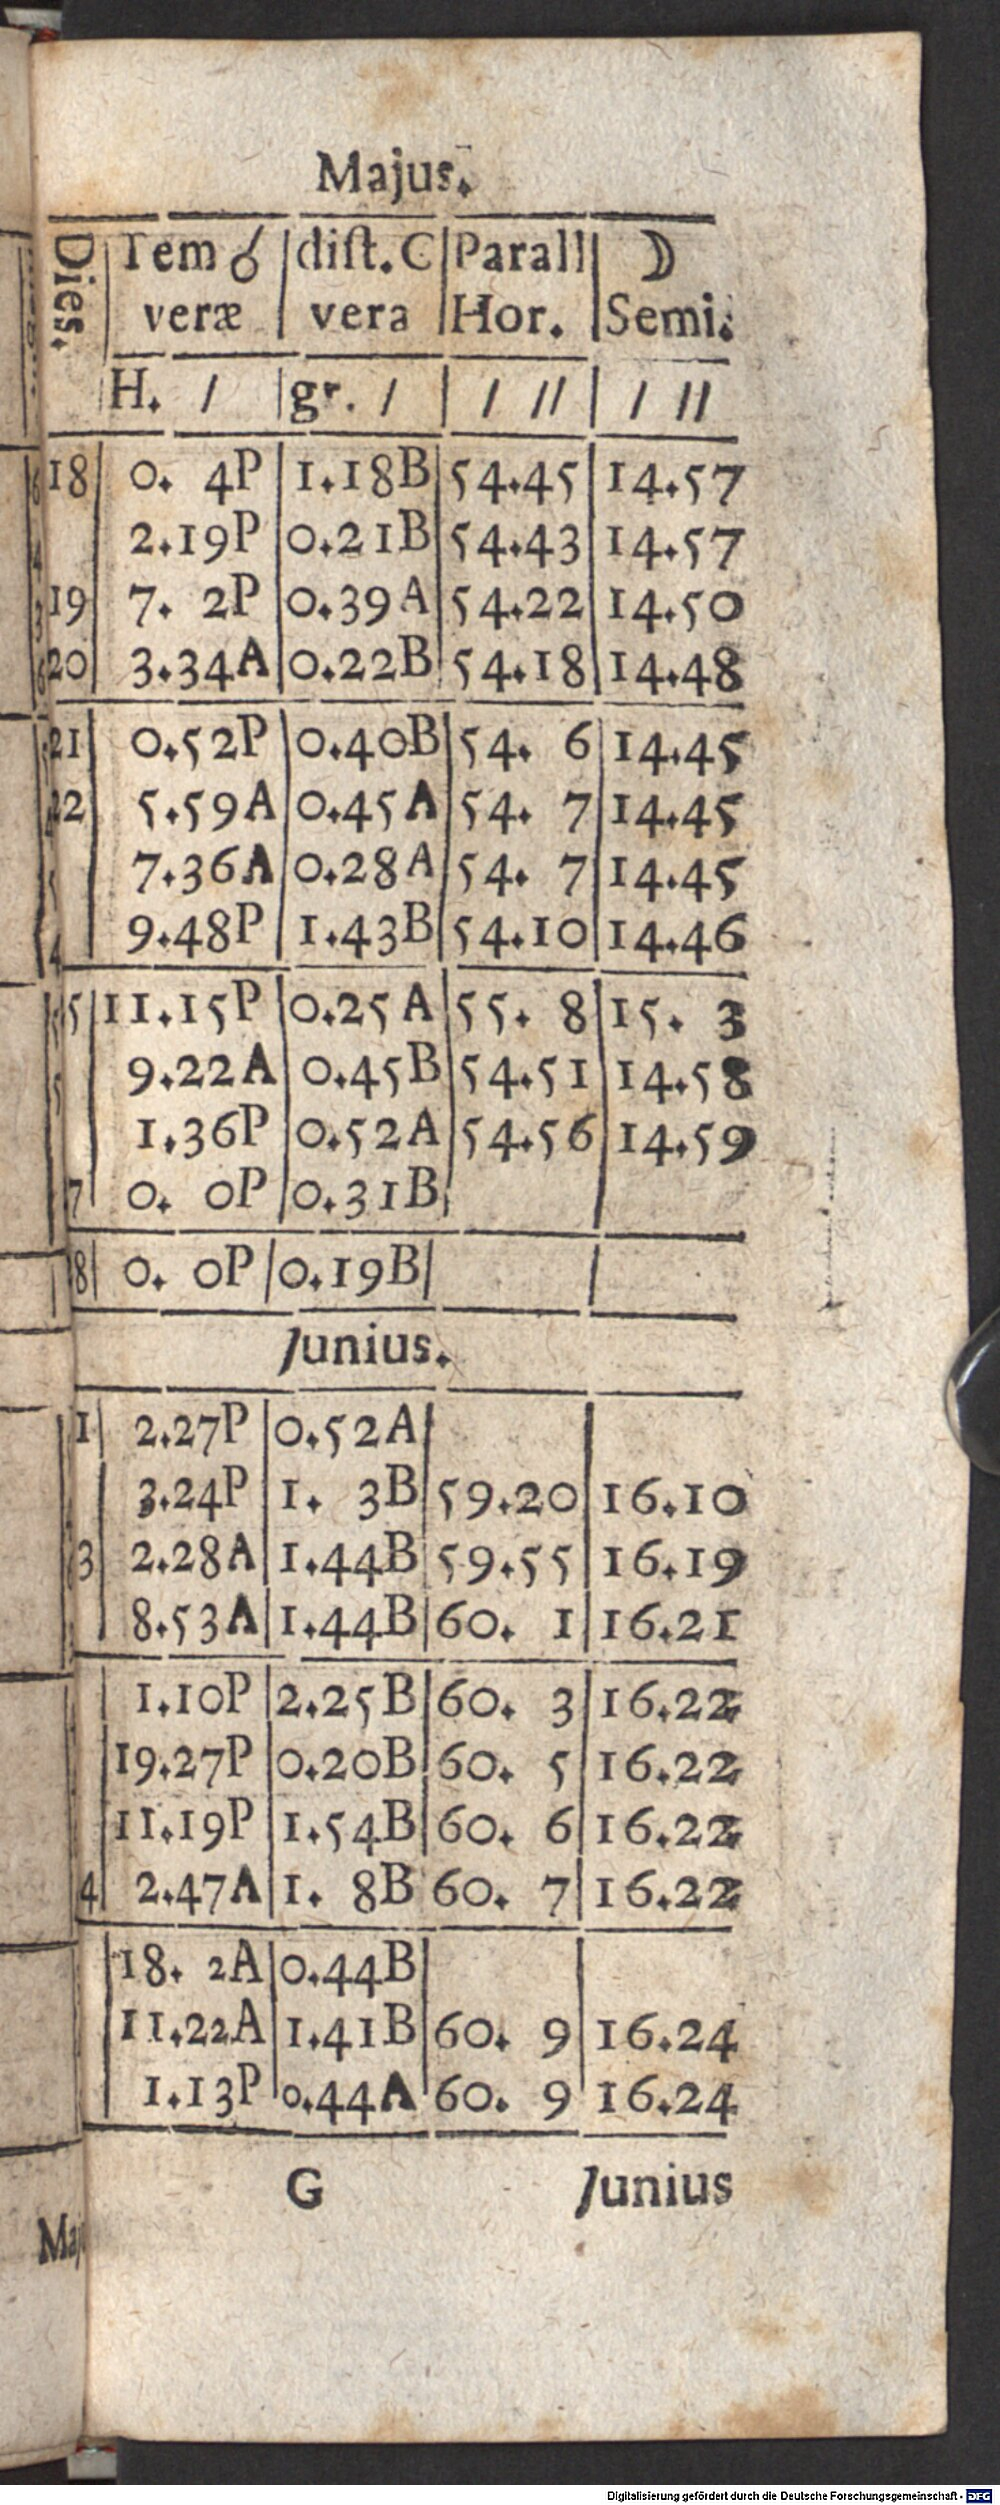 Majus.
Dies. Tem ☌ dist. C Parall ☽
veræ vera Hor. Semi.
H. / gr. / / // / //
18 0. 4P 1.18B 54.45 14.57
2.19P 0.21B 54.43 14.57
19 7. 2P 0.39A 54.22 14.50
20 3.34A 0.22B 54.18 14.48
21 0.52P 0.40B 54. 6 14.45
22 5.59A 0.45A 54. 7 14.45
7.36A 0.28A 54. 7 14.45
9.48P 1.43B 54.10 14.46
5 11.15P 0.25A 55. 8 15. 3
9.22A 0.45B 54.51 14.58
1.36P 0.52A 54.56 14.59
7 0. 0P 0.31B
8 0. 0P 0.19B
Junius.
1 2.27P 0.52A
3.24P 1. 3B 59.20 16.10
3 2.28A 1.44B 59.55 16.19
8.53A 1.44B 60. 1 16.21
1.10P 2.25B 60. 3 16.22
19.27P 0.20B 60. 5 16.22
11.19P 1.54B 60. 6 16.22
4 2.47A 1. 8B 60. 7 16.22
18. 2A 0.44B
11.22A 1.41B 60. 9 16.24
1.13P 0.44A 60. 9 16.24
G Junius
Digitalisierung gefördert durch die Deutsche Forschungsgemeinschaft - DFG